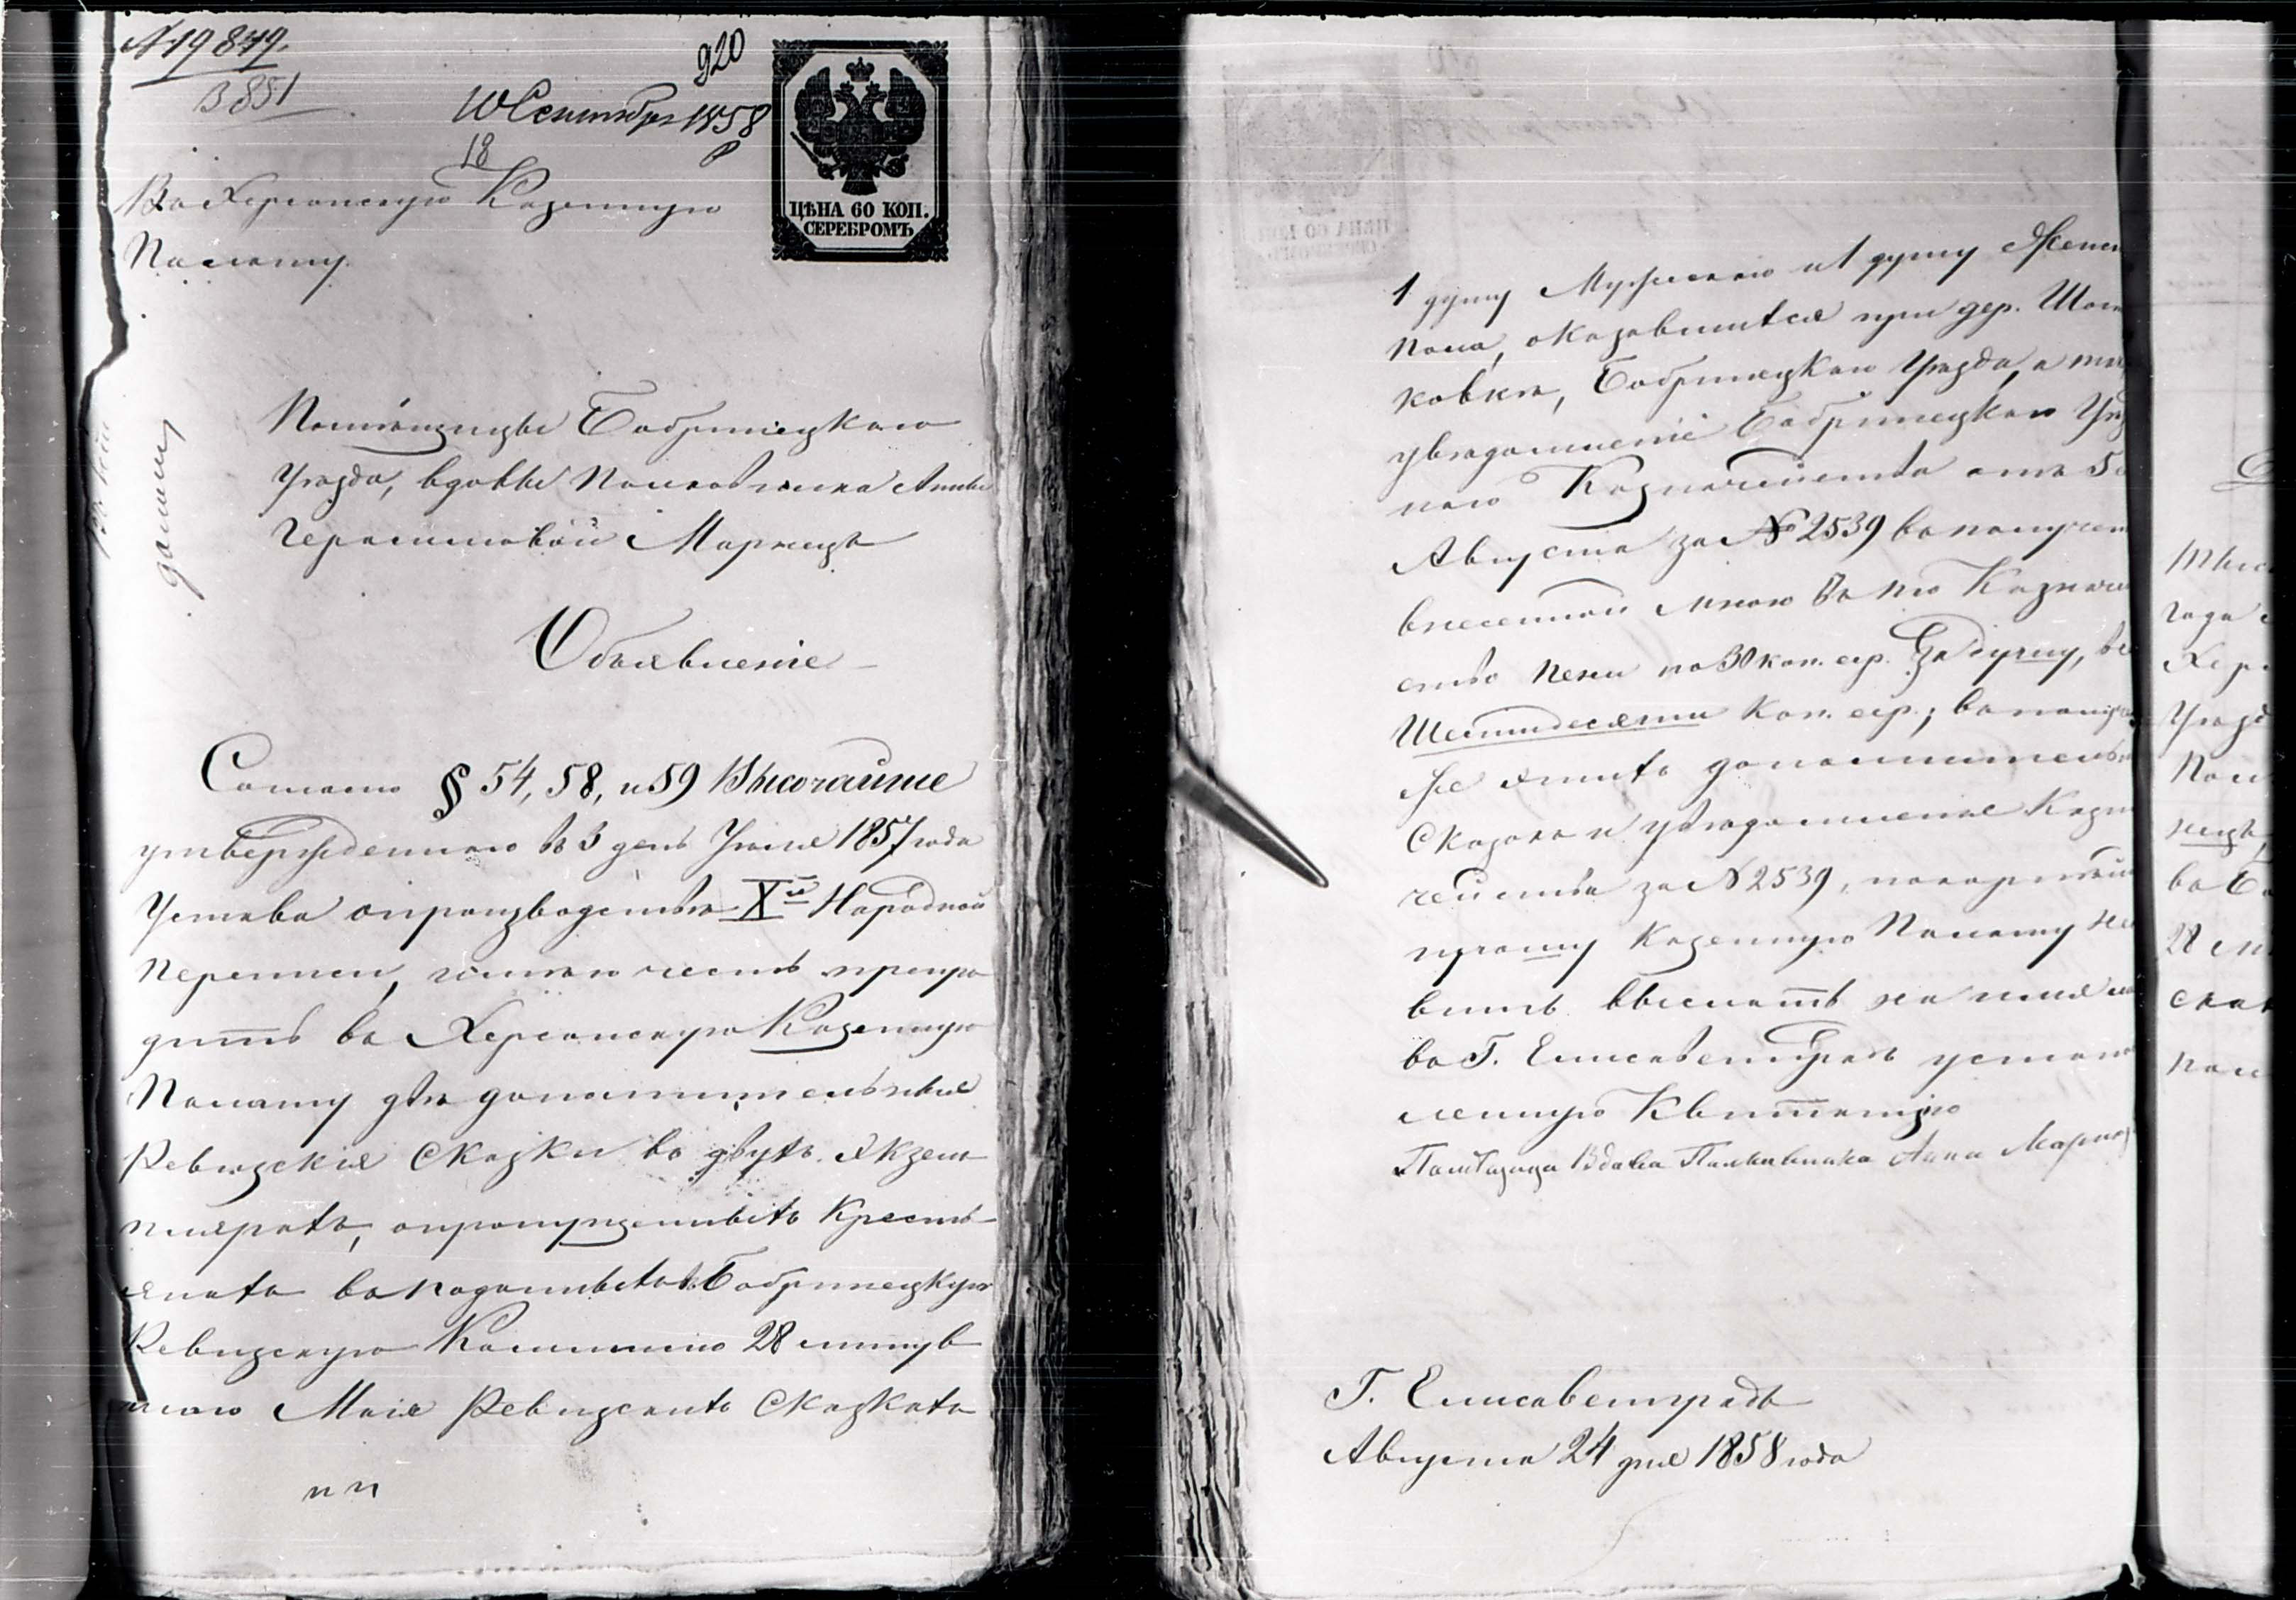 N 19849.
В 851
920
10 Сентября 1858
18
ЦѢНА 60 КОП.
СЕРЕБРОМЪ
Въ Херсонскую Казенную
Палату.
Помѣщицы Бобринецкаго
Уѣзда, вдовы Полковника Анны
Герасимовой Маркецъ
Объявленіе
Согласно § 54, 58, и 59 Высочайше
утвержденнаго въ 3 день Іюня 1857 года
Устава о производствѣ Xй Народной
переписи, имѣю честь препро
дить въ Херсонскую Казенную
Палату двѣ дополнительныя
Ревизскія Сказки въ двухъ экзем
плярахъ, о пропущенныхъ Кресть
янахъ въ поданныхъ въ Бобринецкую
Ревизскую Коммисію 28 минув
шаго Маія Ревизскихъ Сказкахъ
1 душу Мужескаго и 1 душу Женск
пола, оказавшихся при дер. Шос
ковкѣ, Бобринецкаго Уѣзда, а так
увѣдомленіе Бобринецкаго Уѣз
наго Казначейства отъ 5
Августа за № 2539 въ полученіи
внесенной мною въ то Казначей
ство пени по 30 коп. сер. за душу, все
Шестьдесятъ Коп. сер.; въ получ
же этихъ дополнительн
Сказокъ и увѣдомленія Казн
чейства за N 2539, покорнѣй
прошу Казенную Палату не
вить выслать на имя м
въ Г. Елисаветградъ устано
ленную Квитанцію
Помѣщица Вдова Полковника Анна Марк
Г. Елисаветградъ
Августа 24 дня 1858 года
года
Хер
Уѣзд
Пол
нецъ,
въ Бо
28 м
сказ
пол